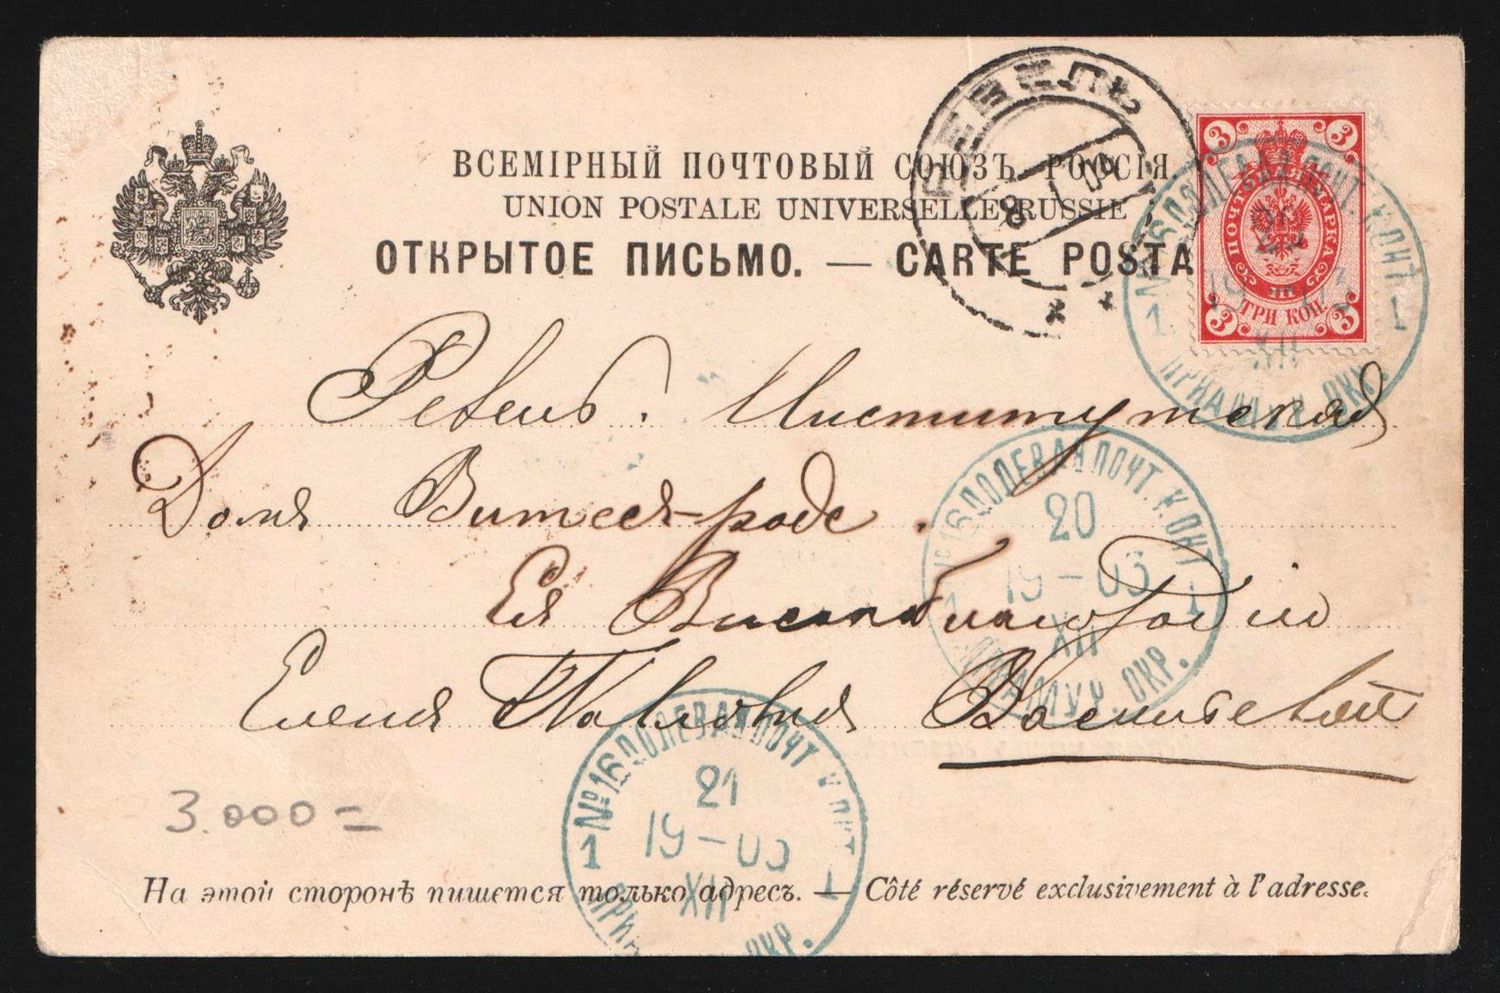 ВСЕМІРНЫЙ ПОЧТОВЫЙ СОЮЗЪ. РОССІЯ.
UNION POSTALE UNIVERSELLE RUSSIE
ОТКРЫТОЕ ПИСЬМО. — CARTE POSTA
РЕВЕЛЬ
8 04
3 3
ПОЧТОВАЯ МАРКА
ТРИ КОП.
3 3
№16 ПОЛЕВАЯ ПОЧТ. КОНТ.
1 19 03 1
XII
ПРИАМУР. ОКР.
Ревель. Институтская
Домъ Витте
Ея Высокоблагородію
Еленѣ Павловнѣ Васильевой
№16 ПОЛЕВАЯ ПОЧТ. КОНТ
20
1 19-03 1
XII
ПРИАМУР. ОКР.
№16 ПОЛЕВАЯ ПОЧТ КОНТ
21
1 19-03 1
XII
ПРИА ОКР.
3.000=
На этой сторонѣ пишется только адресъ. — Côté réservé exclusivement à l'adresse.